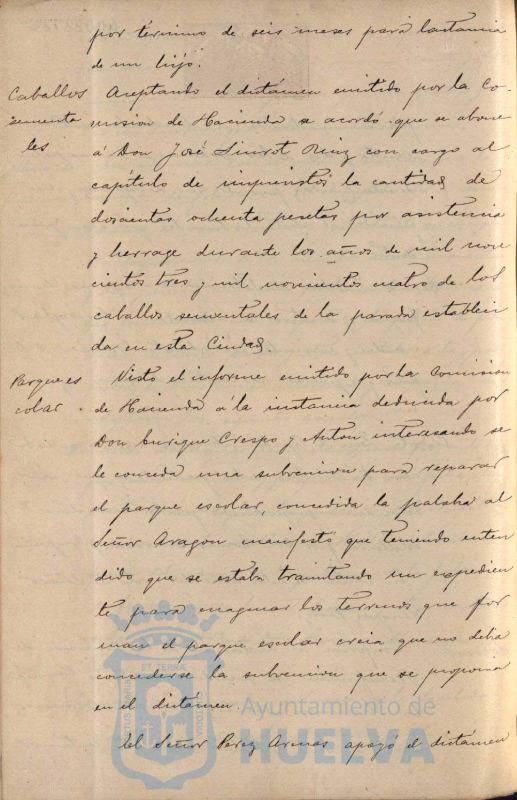 por término de seis meses para lactancia
de un hijo.
Caballos
sementa
les
Aceptando el dictámen emitido por la Co-
mision de Hacienda se acordó que se abone
á Don José Sinrot Ruiz con cargo al
capítulo de imprevistos la cantidad de
doscientas ochenta pesetas por asistencia
y herrage durante los años de mil nove
cientos tres y mil novecientos cuatro de los
caballos sementales de la parada estableci
da en esta Ciudad.
Parque es
colar.
Visto el informe emitido por la Comision
de Hacienda á la instancia deducida por
Don Enrique Crespo y Anton interesando se
le conceda una subvencion para reparar
el parque escolar, concedida la palabra al
Señor Aragon manifestó que teniendo enten
dido que se estaba tramitando un expedien
te para enagenar los terrenos que for
man el parque escolar creia que no debia
concederse la subvencion que se proponia
en el dictámen.
El Señor Perez Arenas apoyó el dictámen
ET TERRÆ
Ayuntamiento de
HUELVA